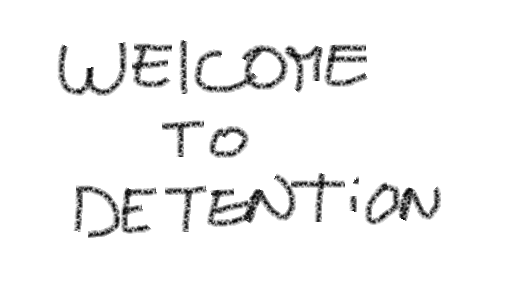 WELCOME
TO
DETENTION